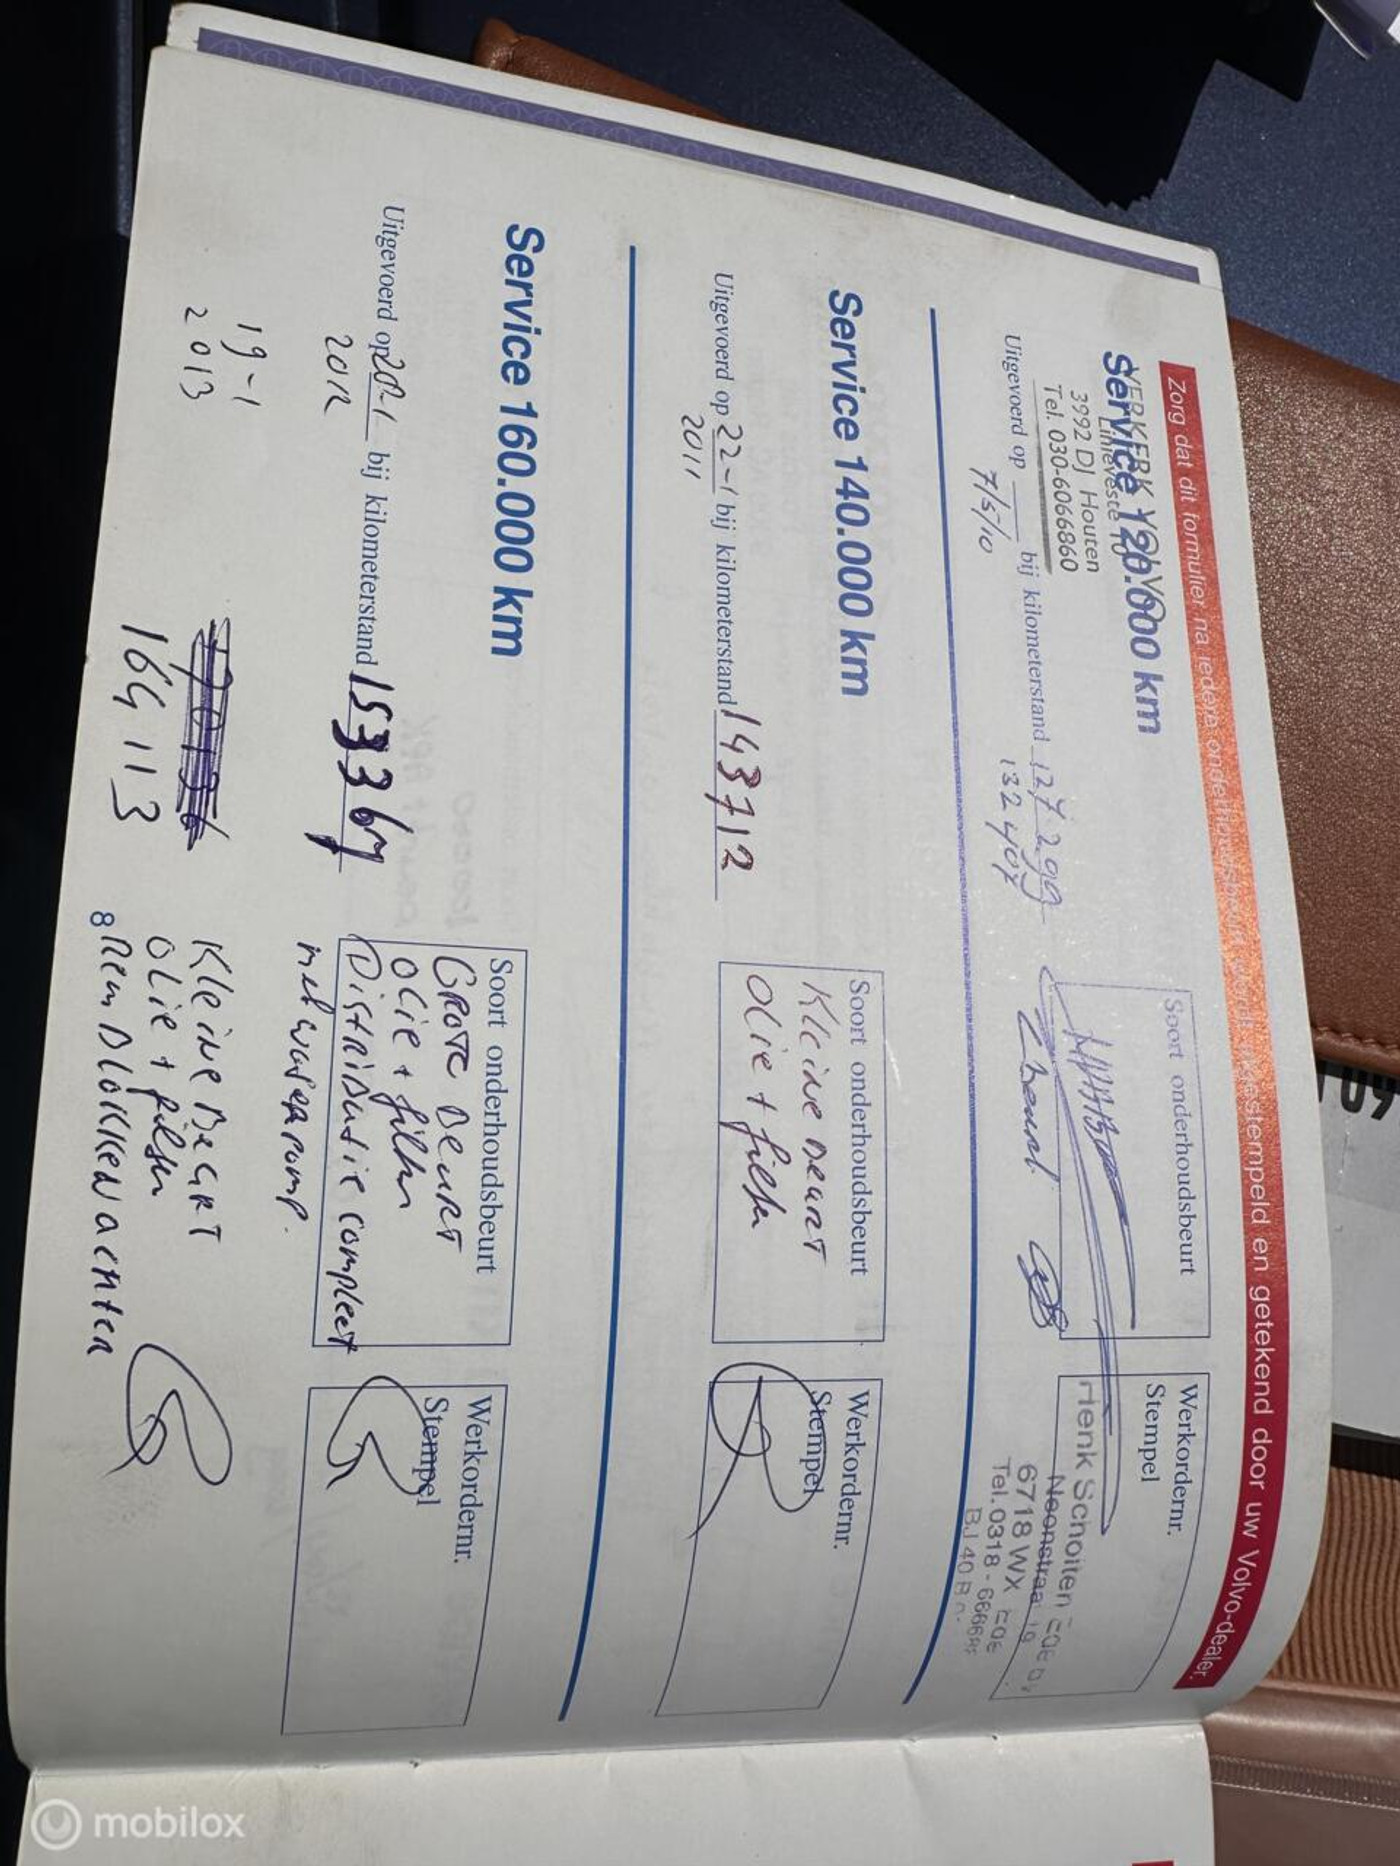 Zorg dat dit formulier na iedere onderhoudsbeurt wordt afgestempeld en getekend door uw Volvo-dealer.
Service 120.000 km
VERKERK VOLVO
Linievest 10
3992 DJ Houten
Tel. 030-6066860
Uitgevoerd op bij kilometerstand 127299
7/5/10 132407
Soort onderhoudsbeurt
Werkordernr.
Stempel
Henk Scholten Ede
6718 WX Ede
Tel. 0318 -
Service 140.000 km
Uitgevoerd op 22-1 bij kilometerstand 143712
2011
Soort onderhoudsbeurt
Kleine Beurt
Olie + filter
Werkordernr.
Stempel
Service 160.000 km
Uitgevoerd op 20-1 bij kilometerstand 153367
2012
Soort onderhoudsbeurt
Grote Beurt
Olie + filter
Distributie compleet
met waterpomp.
Werkordernr.
Stempel
19-1
2013
164113
Kleine Beurt
Olie + filter
Remblokken achter
8
mobilox